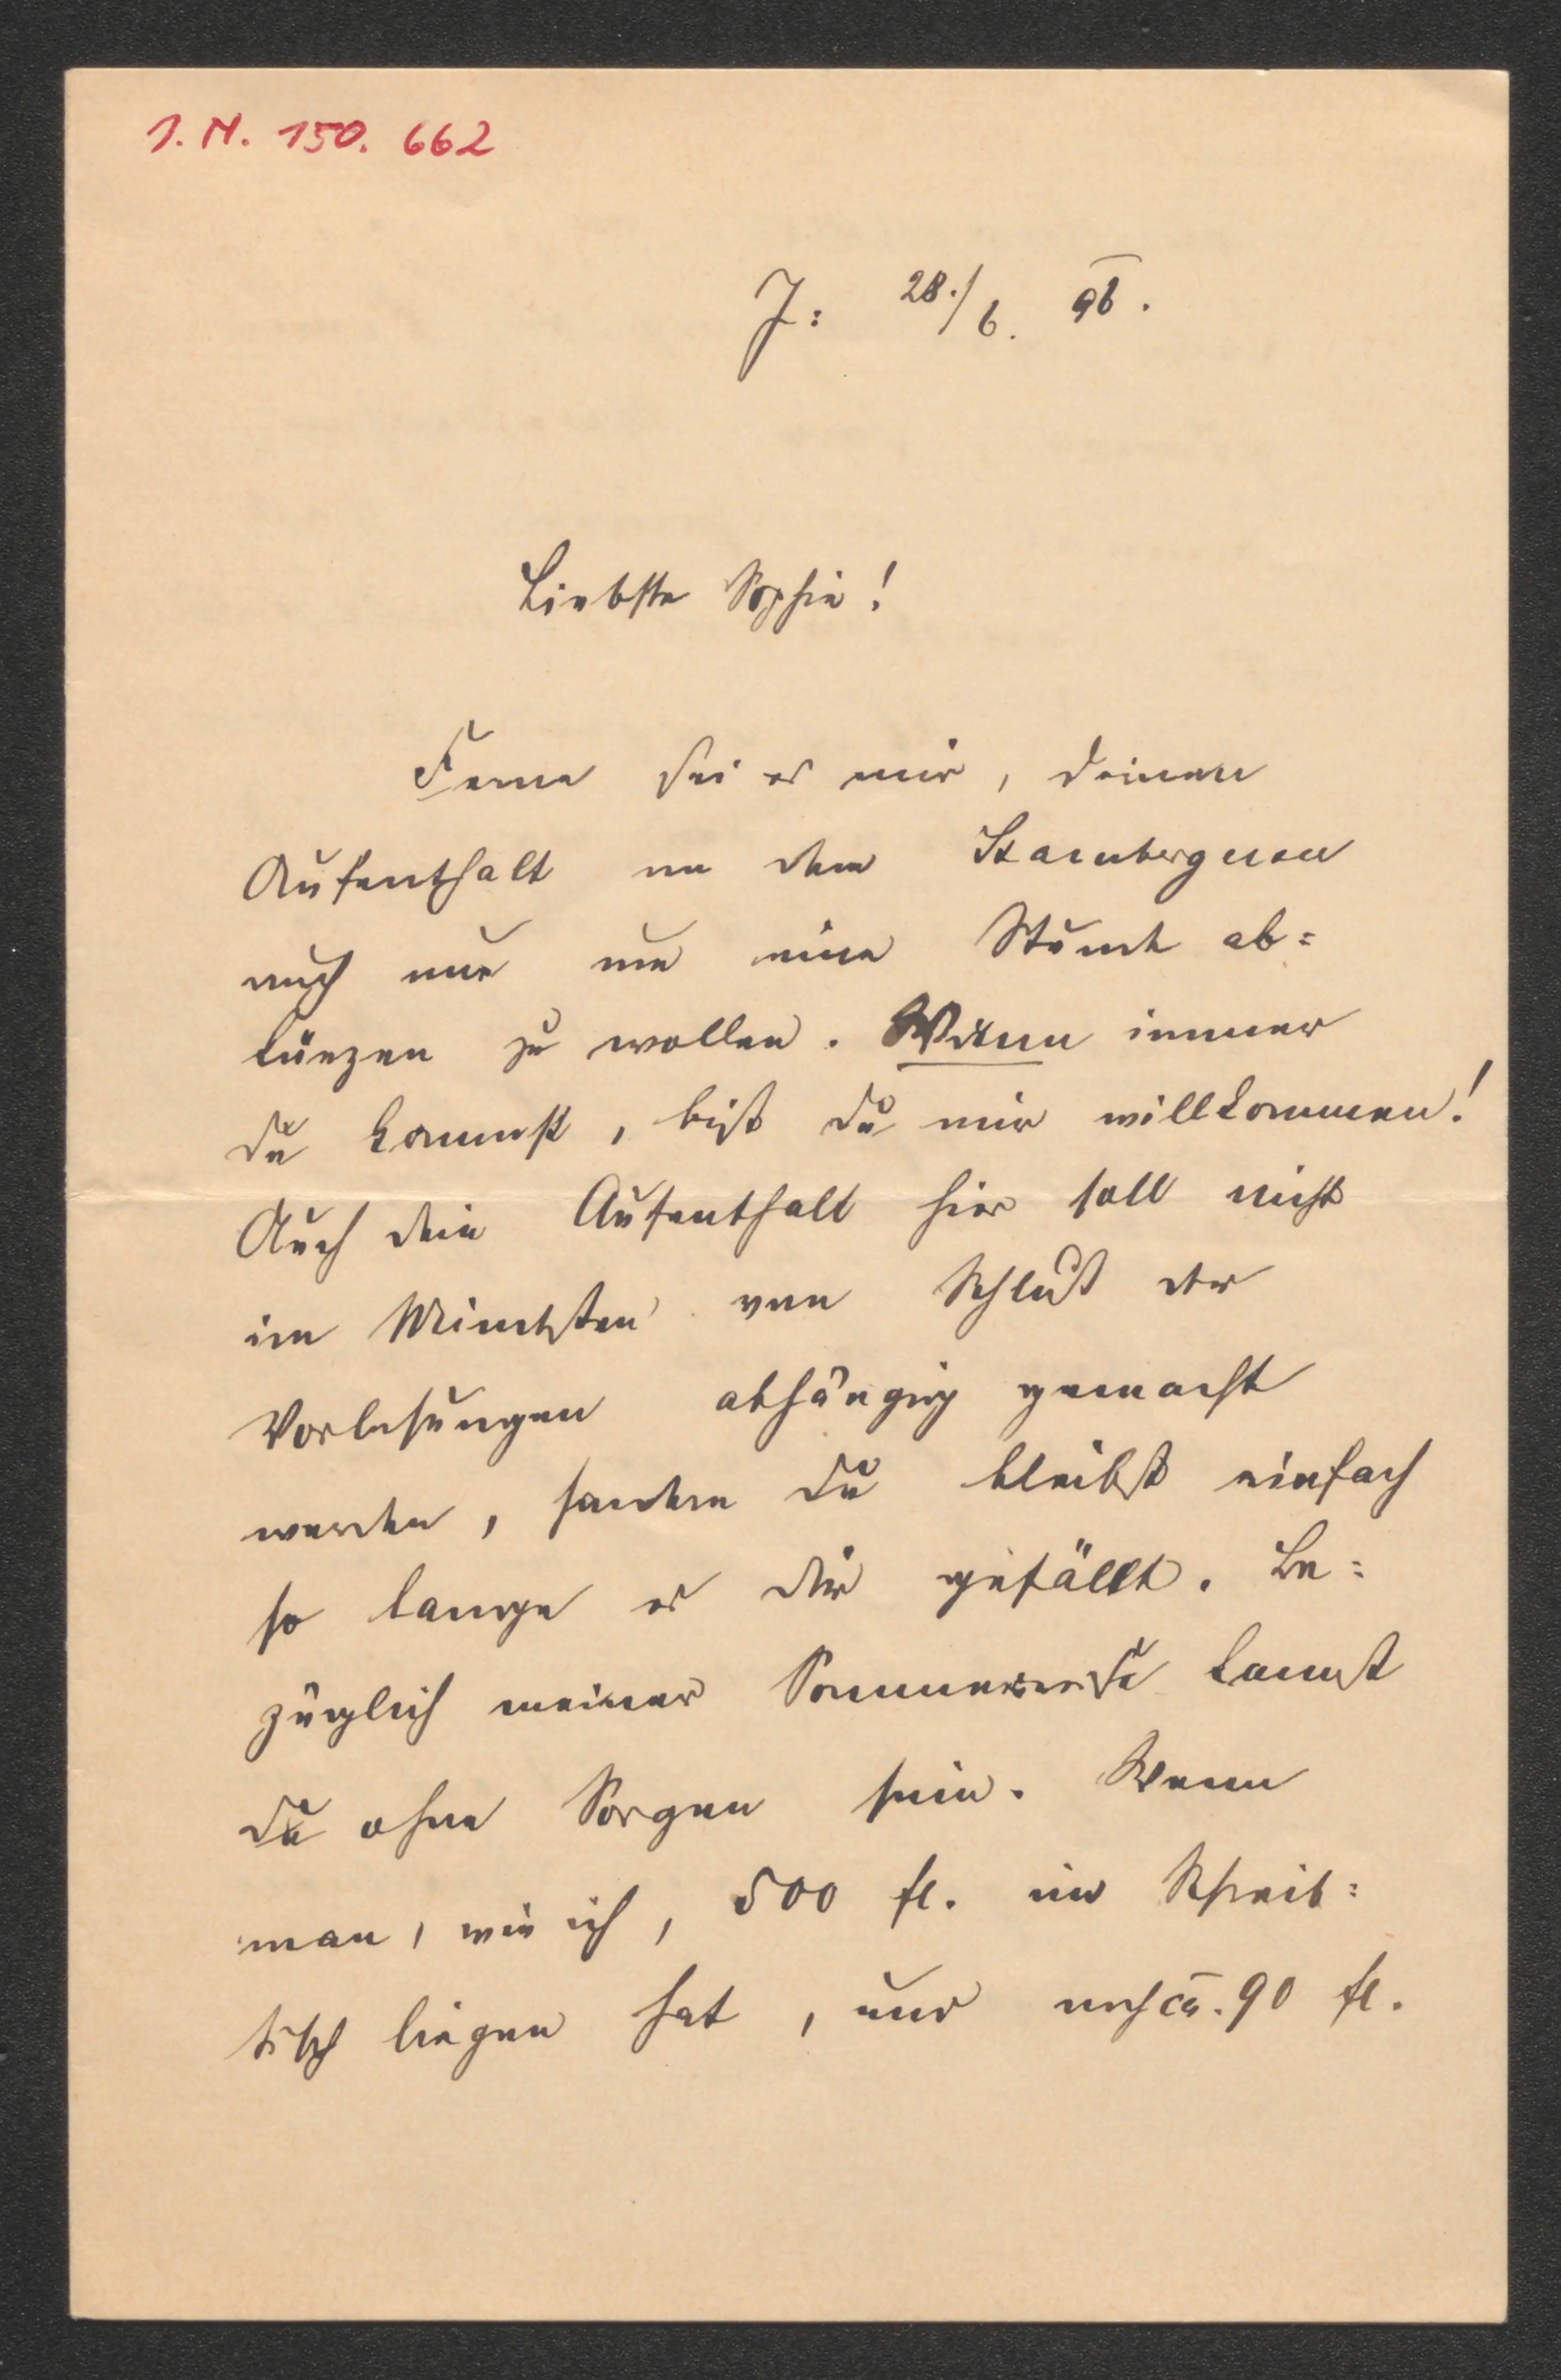 I. N. 150.662
J: 28./6. 96.
Liebste Sophie!
Ferne sei es mir, deinen
Aufenthalt an dem Starnbergersee
auch nur um eine Stunde ab=
kürzen zu wollen. Wann immer
du kommst, bist du mir willkommen!
Auch dein Aufenthalt hier soll nicht
im Mindesten vom Schluß der
Vorlesungen abhängig gemacht
werden, sondern du bleibst einfach
so lange es dir gefällt. Be=
züglich meiner Sommerreise kannst
du ohne Sorgen sein. Wenn
man, wie ich, 500 fl. im Schreib=
tisch liegen hat, und noch ca. 90 fl.